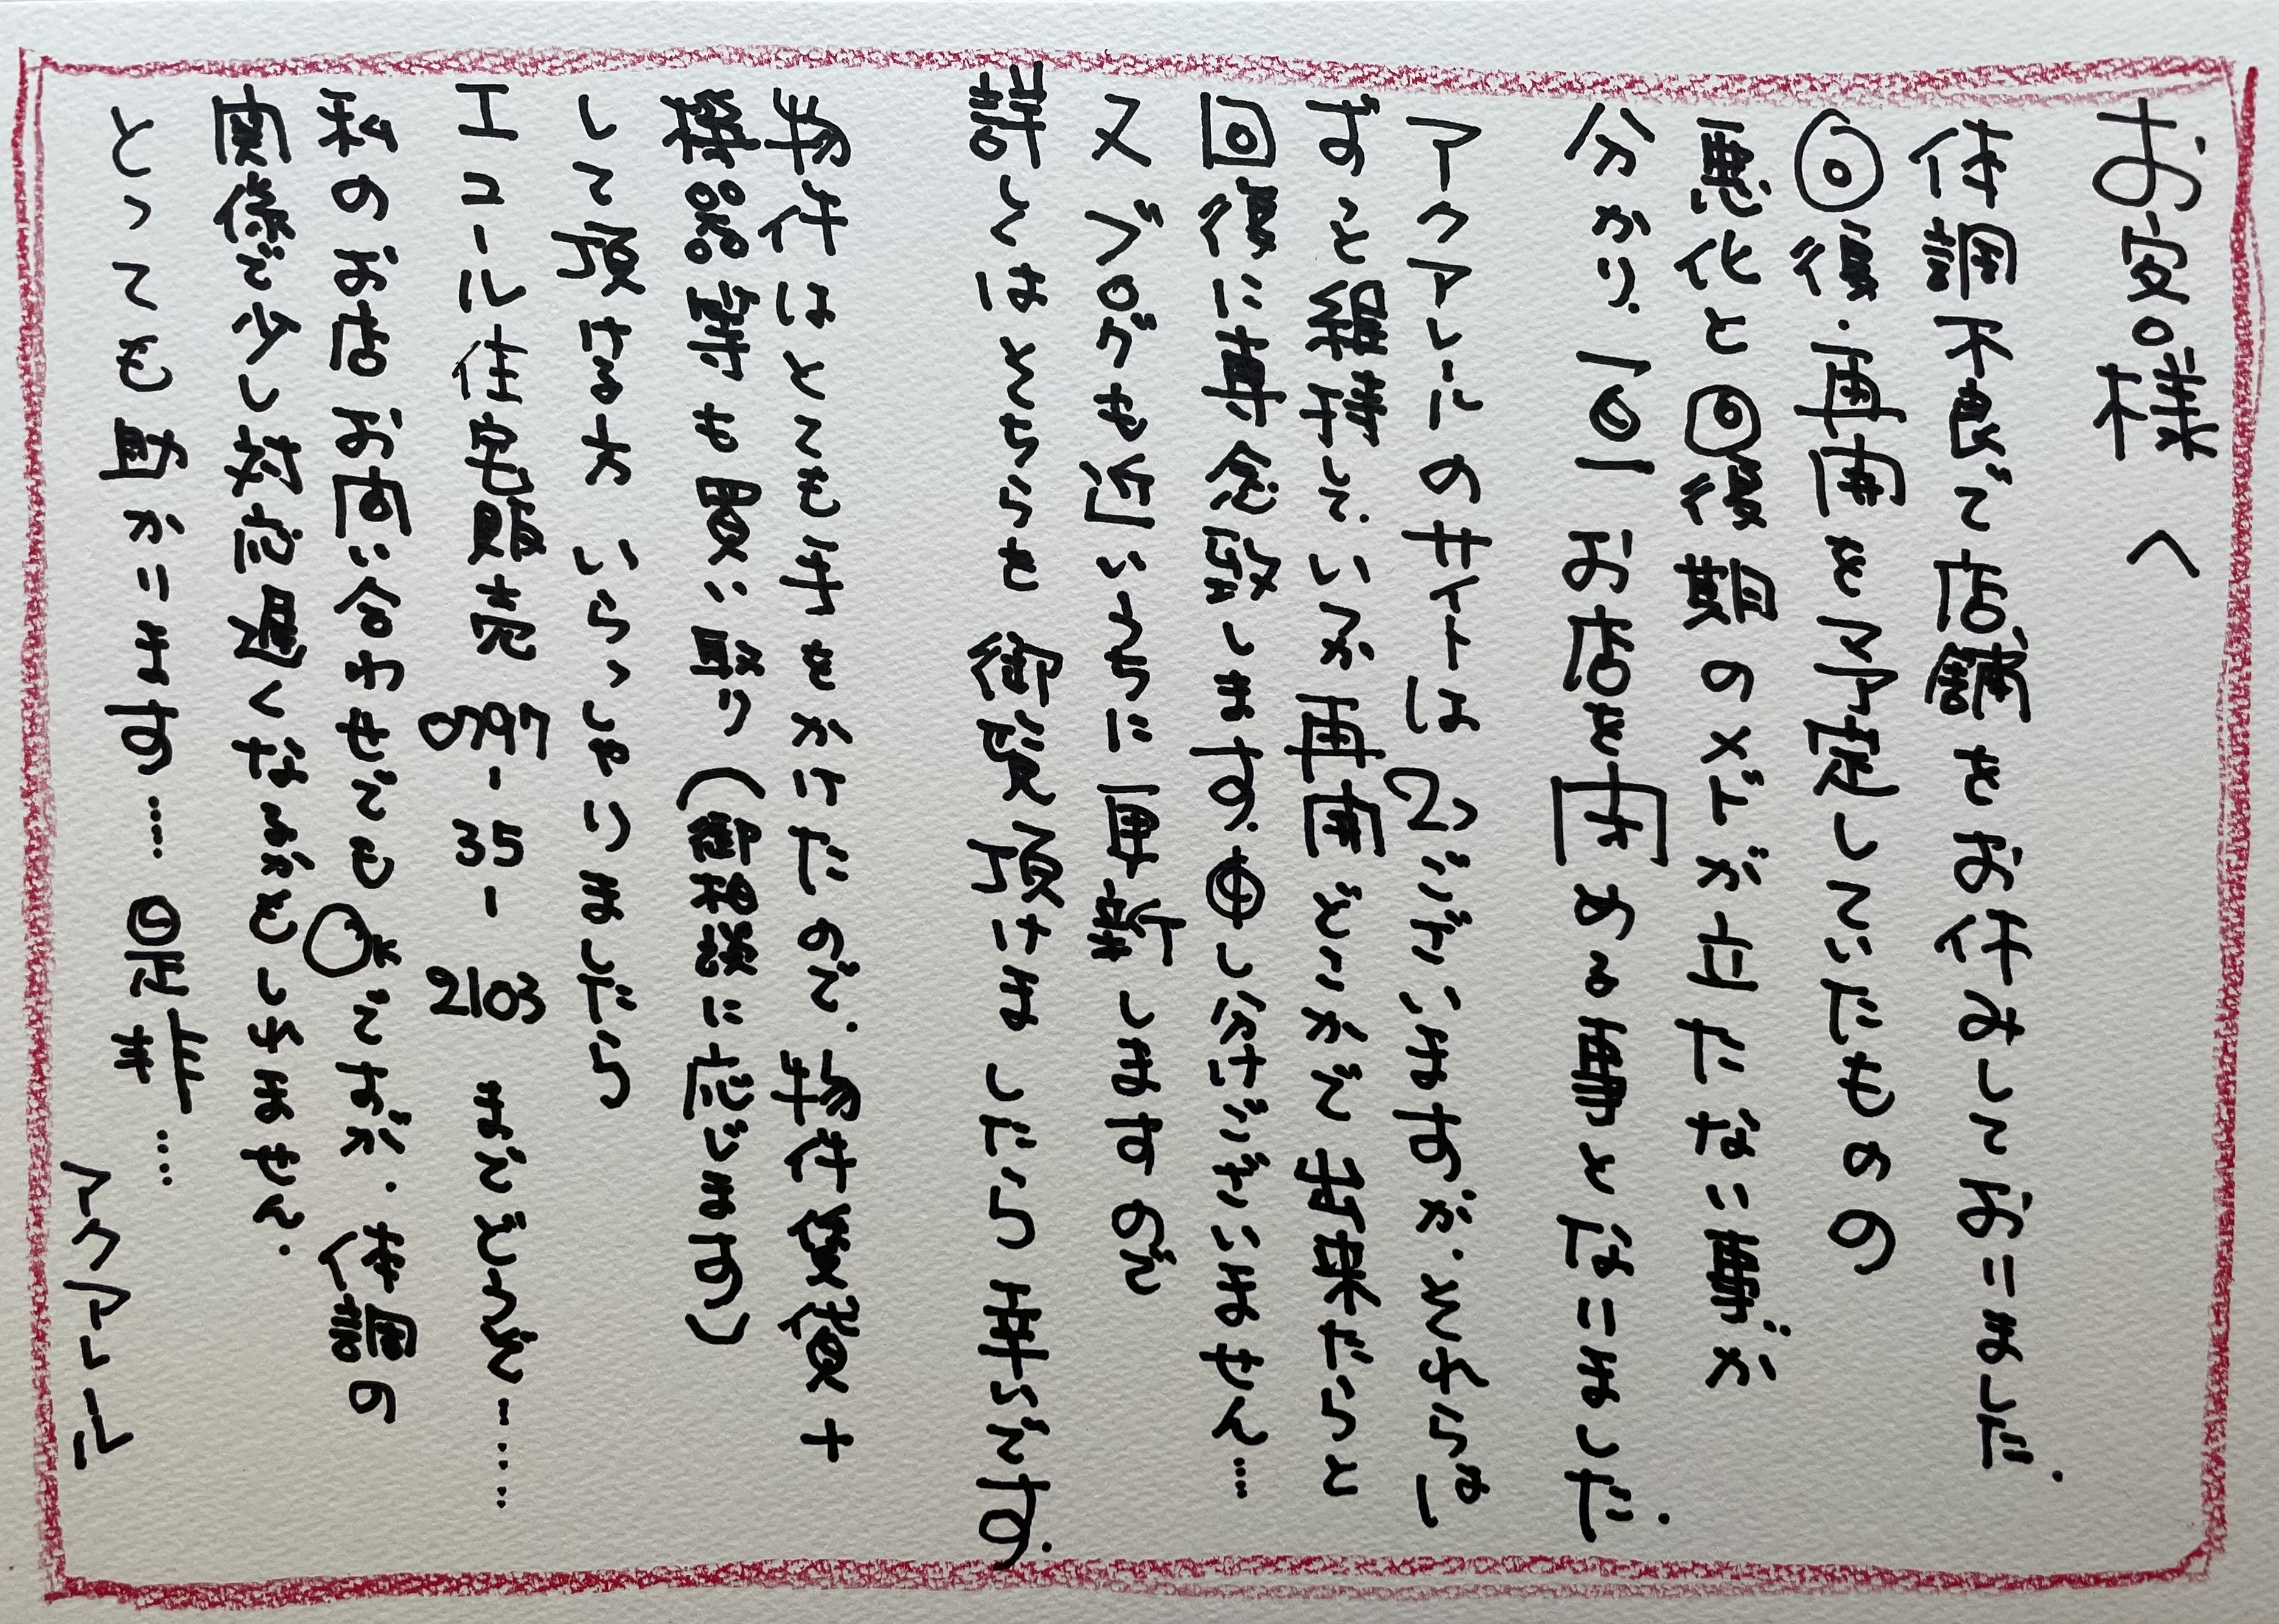 お客様へ
体調不良で店舗をお休みしておりました.
回復.再開を予定していたものの
悪化と回復期のメドが立たない事が
分かり.一旦お店を閉める事となりました.
アクアレールのサイトは2つございますが.それらは
ずっと維持して.いつか再開どこかで出来たらと
回復に専念致します.申し分けございません…
又ブログも近いうちに更新しますので
詳しくはそちらを御覧頂けましたら幸いです.
物件はとても手をかけたので.物件賃貸+
機器等も買い取り(御相談に応じます)
して頂ける方いらっしゃりましたら
エコール住宅販売 0797-35-2103 までどうぞ……
私のお店お問い合わせでもOKですが.体調の
関係で少し対応遅くなるかもしれません.
とっても助かります…是非…
アクアレール